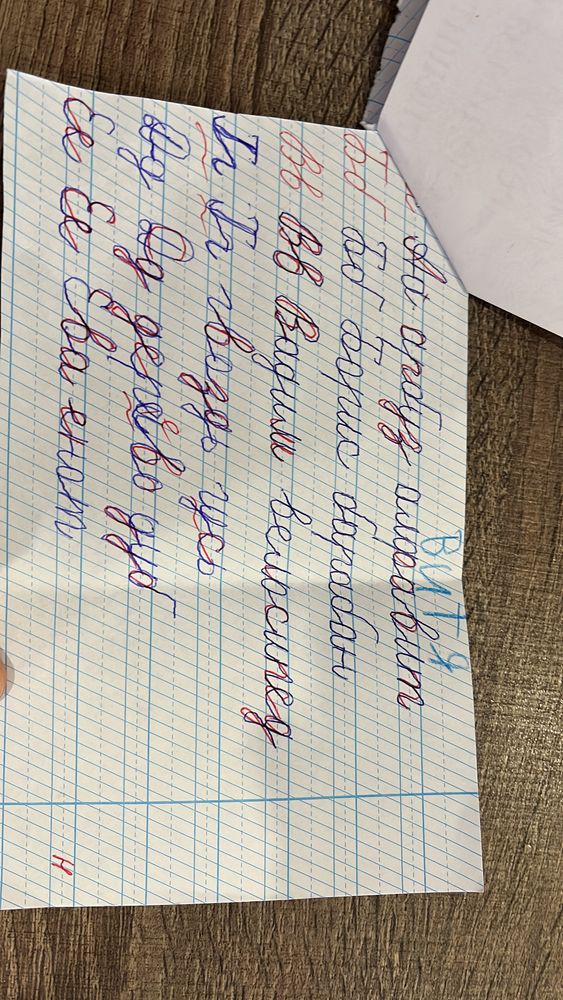 Витя
Аа арбуз алфавит
Бб Бб Борис барабан
Вв Вв Вадим велосипед
Гг Гг гвоздь гусь
Дд Дд дерево дуб
Ее Ее Ева енот
н